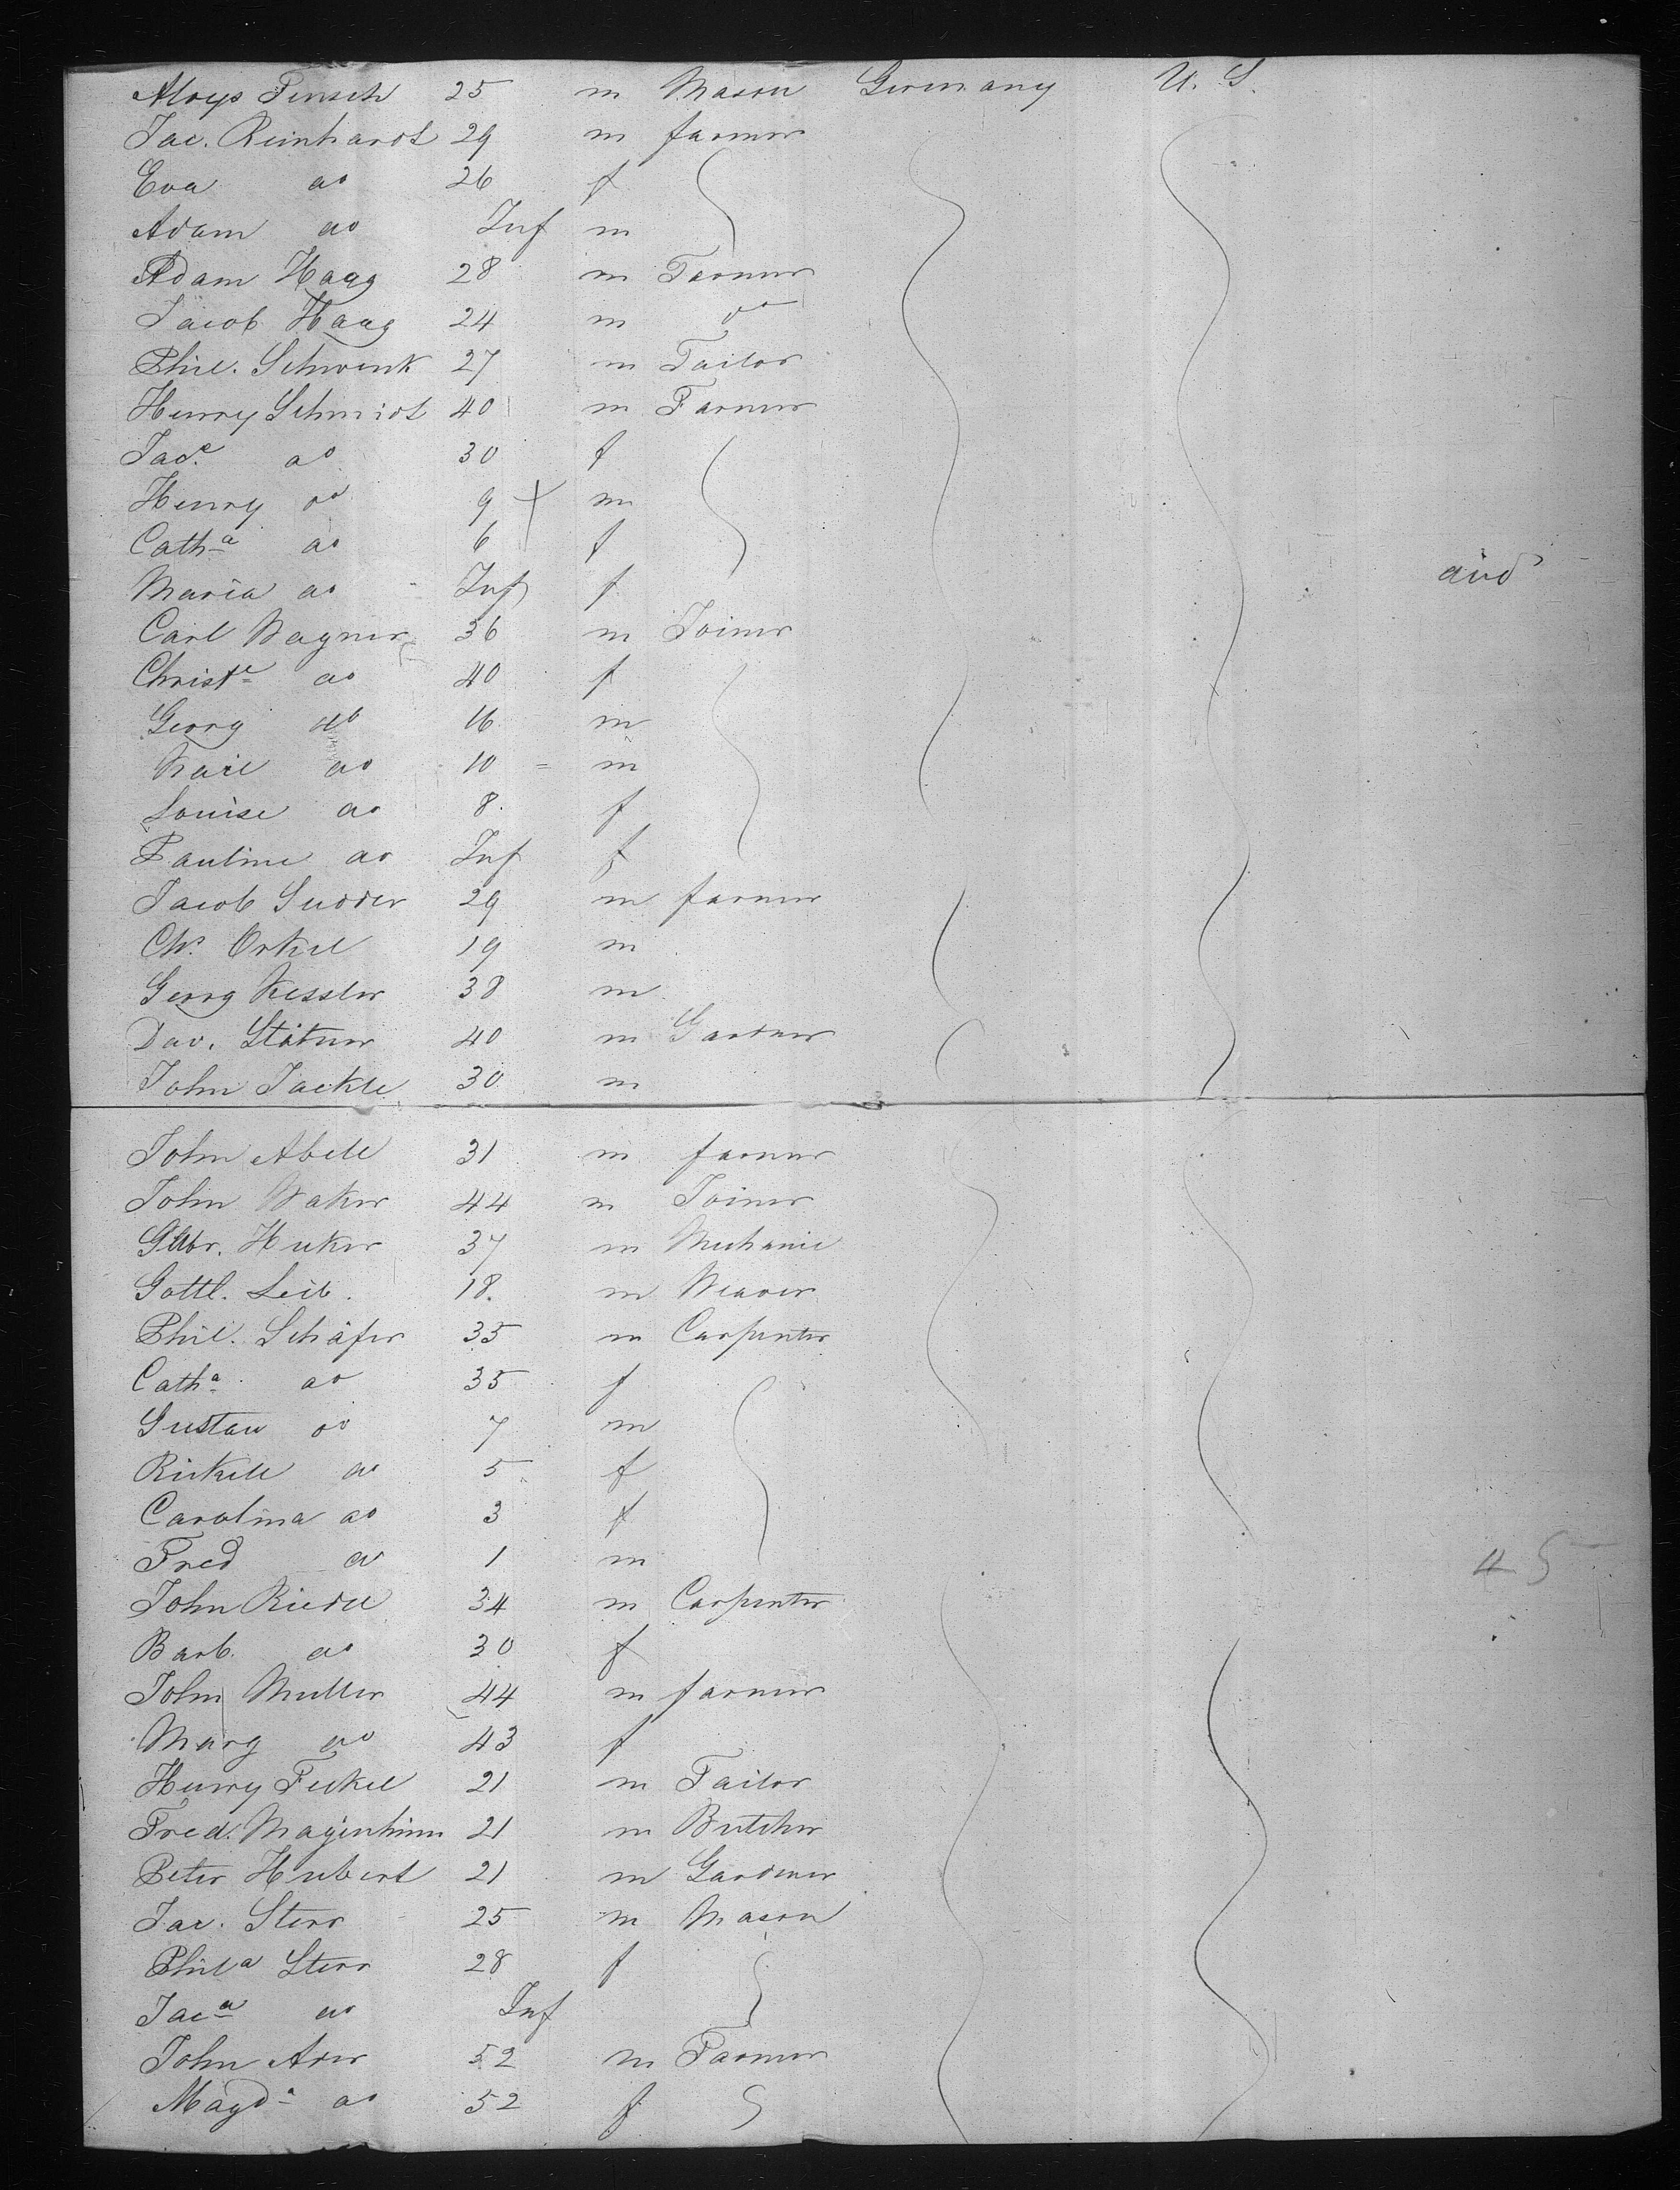 Aloys Pensch 25 m Mason Germany U. S.
Jac. Reinhardt 29 m farmer
Eva do 26 f
Adam do Inf m
Adam Haag 28 m Farmer
Jacob Haag 24 m do
Phil. Schwenk 27 m Tailor
Henry Schmidt 40 m Farmer
Jace. do 30 f
Henry do 9 m
Catha do 6 f
Maria do Inf f
and
Carl Wagner 36 m Joiner
Christe do 40 f
Georg do 16 m
do 10 m
Louise do 8 f
Pauline do Inf f
Jacob Sudder 29 m farmer
Chr. Orkel 19 m
Georg Kessler 38 m
Dav. 40 m Gardner
John Jackle 30 m
John Abele 31 m farmer
John Waker 44 m Joiner
Huker 37 m Mechanic
Gottl. Leib. 18. m Weaver
Phil. Schäfer 35 m Carpenter
Catha do 35 f
Gustav do 7 m
Rickele do 5 f
Carolina do 3 f
Fred do 1 m
45
John Riedel 34 m Carpenter
Barb. do 30 f
John Muller 44 m farmer
Marg do 43 f
Henry Fickel 21 m Tailor
Fred. Magenheim 21 m Butcher
Peter Hubert 21 m Gardener
Jac. Sterr 25 m Mason
Phila Sterr 28 f
Jaca do Inf
John Ader 52 m Farmer
Magda do 52 f